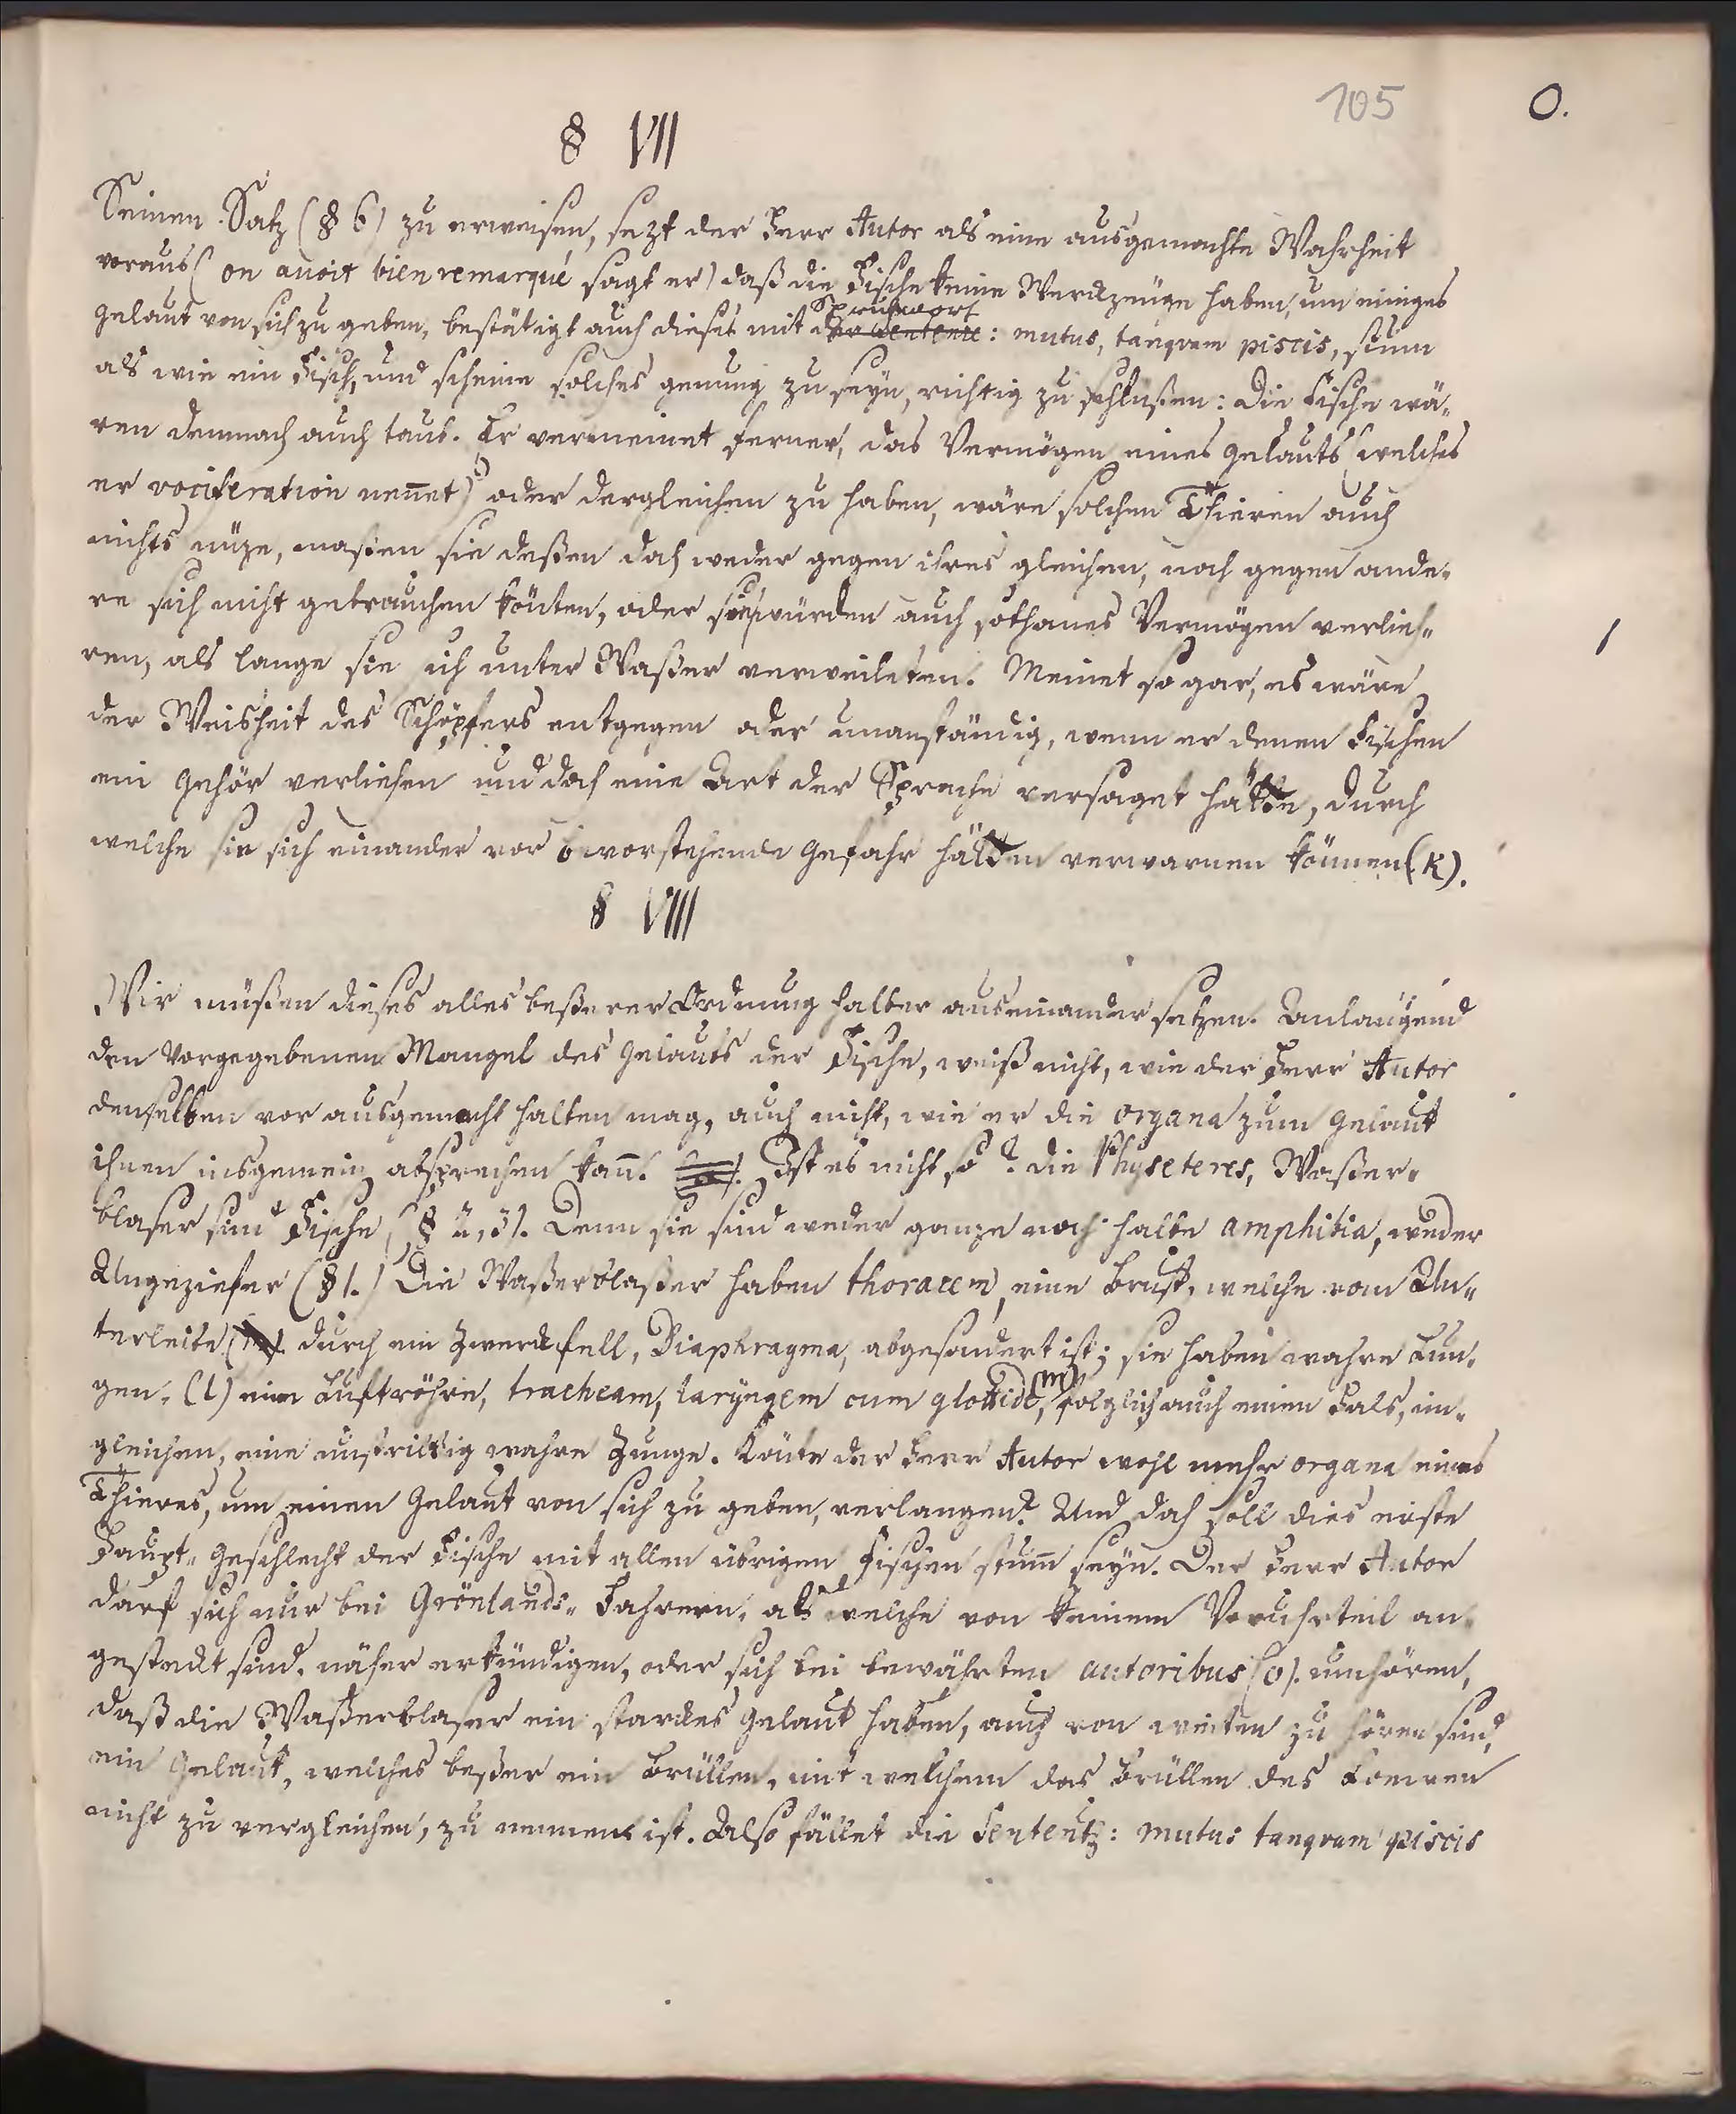 105
O.
§ VII
Seinen Satz (§ 6) zu erweisen, sezt der Herr Autor als eine ausgemachte Wahrheit
voraus (on avoit bien remarqué sagt er) daß die Fische keine Werckzeuge haben, um einiges
Gelaut von sich zu geben, bestätigt auch dieses mit Sprichwort: mutus, tanqvam piscis, stum
als wie ein Fisch, und scheine solches genung zu seyn, richtig zu schlußen: die Fische wä-
ren demnach auch taub. Er vermeinet ferner, das Vermögen eines Gelauts (welches
er vociferation nen̅et) oder dergleichen zu haben, wäre solchen Thieren auch
nichts nüze, maßen sie deßen doch weder gegen ihres gleichen, noch gegen ande-
re sich nicht gebrauchen könten, oder sie würden auch sothanes Vermögen verlieh-
ren, als lange sie sich unter Waßer verweileten. Meinet so gar, es wäre
der Weisheit des Schöpfers entgegen oder unanständig, wenn er denen Fischen
ein Gehör verliehen und doch eine Art der Sprache versaget hätte, durch
welche sie sich einander vor bevorstehende Gefahr hätten verwarnen können (K).
1
§ VIII
Wir müßen dieses alles beßerer Ordnung halber auseinander setzen. Anlangend
den vorgegebenen Mangel des Gelauts der Fische, weiß nicht, wie der Herr Autor
denselben vor ausgemacht halten mag, auch nicht, wie er die organa zum Gelaut
ihnen insgemein absprechen kan̅. Ist es nicht so? die Physeteres, Waßer-
blaser sind Fische, (§ 2, 3). Denn sie sind weder ganze noch halbe amphibia, weder
Ungeziefer (§ 1.) Die Waßerblaßer haben thoracem, eine Brust, welche vom Un-
terleibe durch ein Zwerckfell, Diaphragma, abgesondert ist; sie haben wahre Lun-
gen. (l) eine Luftröhre, tracheam, laryngem cum glottide, (m) folglich auch einen Hals, im-
gleichen, eine unstrittig wahre Zunge. Könte der Herr Autor wohl mehr organa eines
Thieres, um einen Gelaut von sich zu geben, verlangen? Und doch soll dies erste
Haupt-Geschlecht der Fische mit allen übrigen Fischen stum̅ seyn. Der Herr Autor
darf sich nur bei Grönlands-Fahrern, als welche von keinem Voruhrteil an-
gesteckt sind, näher erkündigen, oder sich bei bewährten autoribus (o). umhören,
daß die Waßerblaser ein starckes Gelaut haben, auch von weiten zu hören sind,
ein Gelaut, welches beßer ein Brüllen, mit welchem das Brüllen des Loewen
nicht zu vergleichen, zu nennen ist. Also fället die Sententz: mutus tanqvam piscis